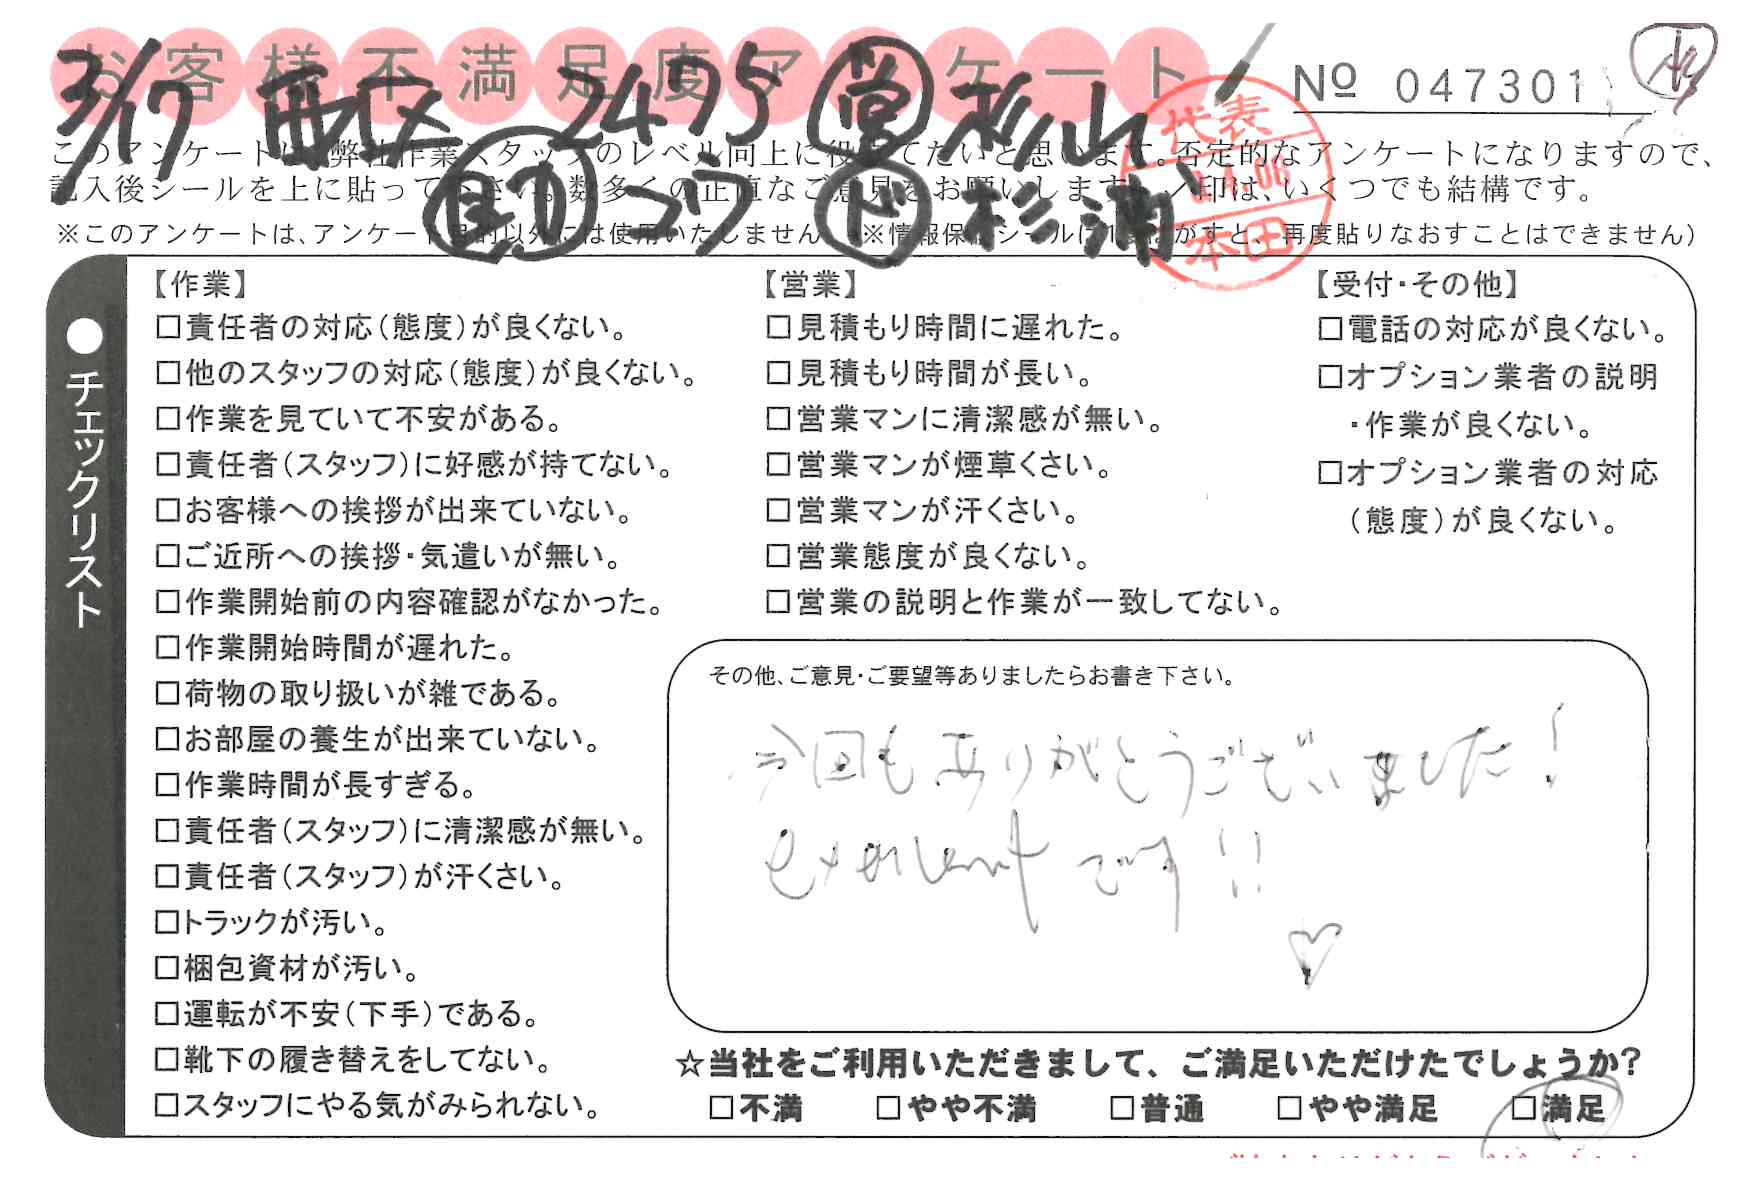 お客様不満足度アンケート
No 047301
3/17 西区 2475 営 杉山
助 つづう ド 杉浦
代表
4.06
本田
このアンケートは、弊社作業スタッフのレベル向上に役立てたいと思います。否定的なアンケートになりますので、
記入後シールを上に貼って下さい。数多くの正直なご意見をお願いします。✓印は、いくつでも結構です。
※このアンケートは、アンケート目的以外には使用いたしません (※情報保護シールは1度はがすと、再度貼りなおすことはできません)
●チェックリスト
【作業】
□責任者の対応(態度)が良くない。
□他のスタッフの対応(態度)が良くない。
□作業を見ていて不安がある。
□責任者(スタッフ)に好感が持てない。
□お客様への挨拶が出来ていない。
□ご近所への挨拶・気遣いが無い。
□作業開始前の内容確認がなかった。
□作業開始時間が遅れた。
□荷物の取り扱いが雑である。
□お部屋の養生が出来ていない。
□作業時間が長すぎる。
□責任者(スタッフ)に清潔感が無い。
□責任者(スタッフ)が汗くさい。
□トラックが汚い。
□梱包資材が汚い。
□運転が不安(下手)である。
□靴下の履き替えをしてない。
□スタッフにやる気がみられない。
【営業】
□見積もり時間に遅れた。
□見積もり時間が長い。
□営業マンに清潔感が無い。
□営業マンが煙草くさい。
□営業マンが汗くさい。
□営業態度が良くない。
□営業の説明と作業が一致してない。
【受付・その他】
□電話の対応が良くない。
□オプション業者の説明
・作業が良くない。
□オプション業者の対応
(態度)が良くない。
その他、ご意見・ご要望等ありましたらお書き下さい。
今回もありがとうございました!
excellentです!!
♡
☆当社をご利用いただきまして、ご満足いただけたでしょうか?
□不満 □やや不満 □普通 □やや満足 □満足